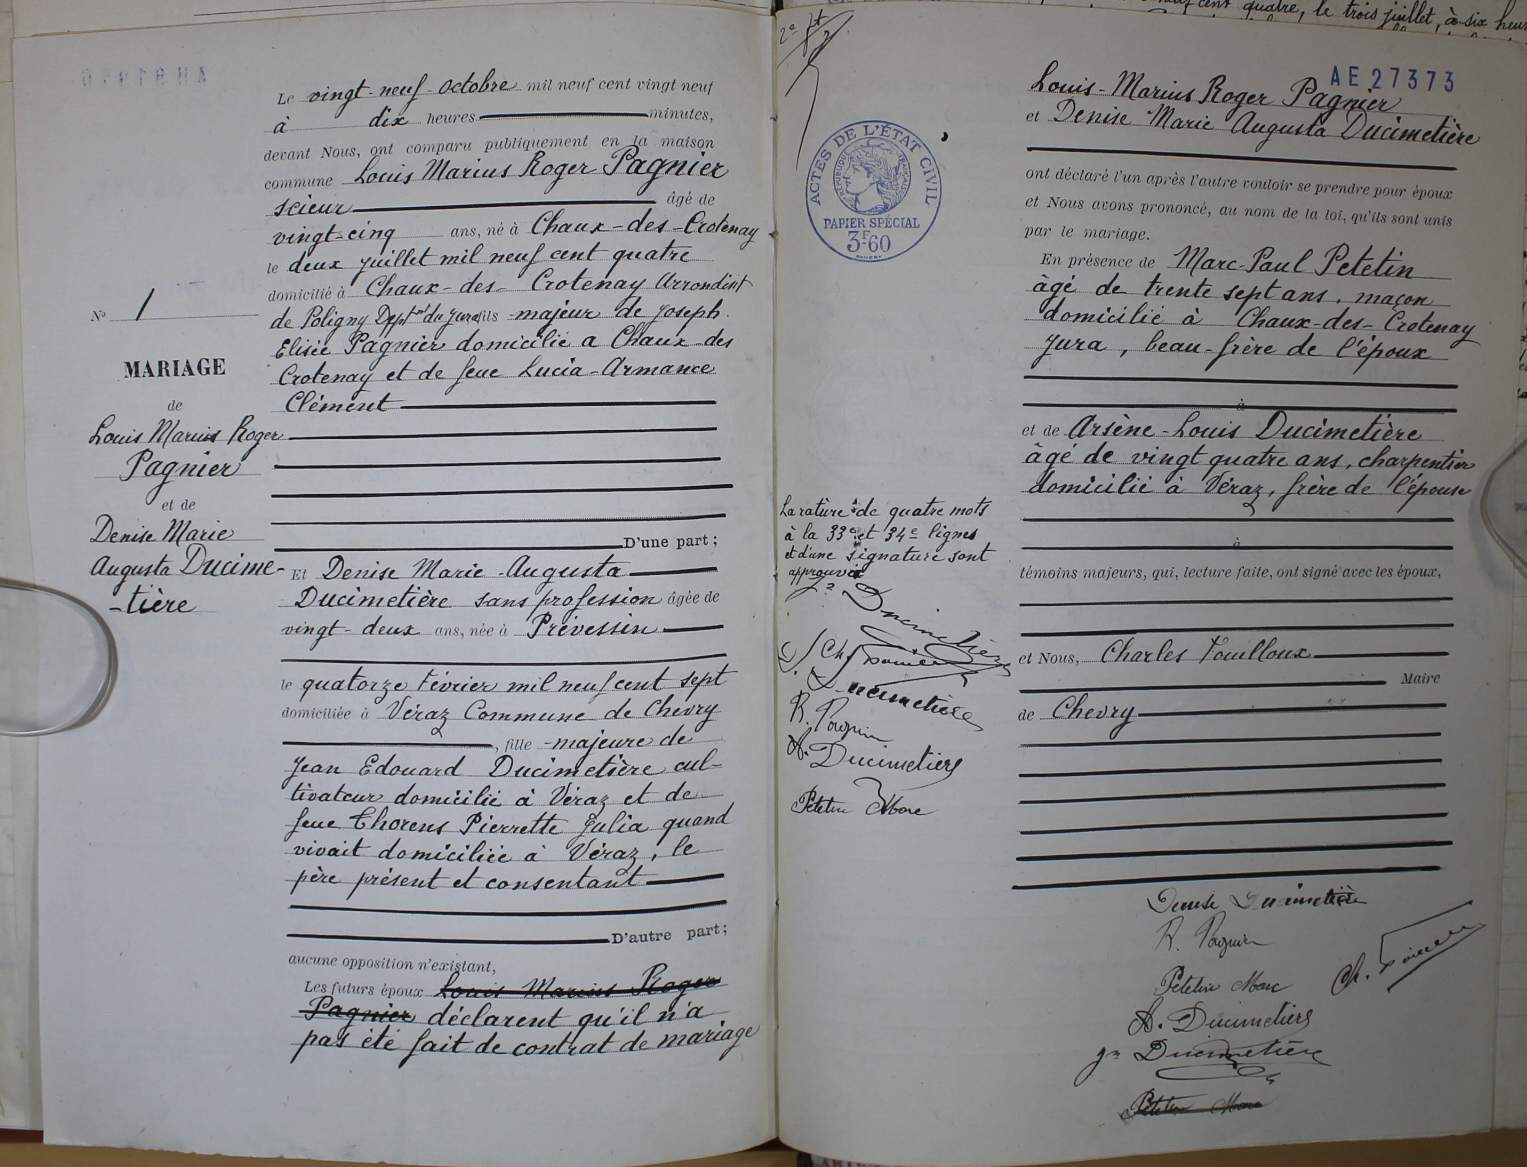 cent quatre, le trois juillet, à six heur
Le vingt-neuf octobre mil neuf cent vingt neuf
à dix heures minutes,
devant Nous, ont comparu publiquement en la maison
commune Louis Marius Roger Pagnier
scieur âgé de
vingt-cinq ans, né à Chaux-des-Crotenay
le deux juillet mil neuf cent quatre
domicilié à Chaux-des-Crotenay Arrondist
de Poligny Dépt du Jura fils majeur de Joseph
Elisée Pagnier domicilié a Chaux-des
Crotenay et de feue Lucia-Armance
Clément
D'une part;
Et Denise Marie-Augusta
Ducimetière sans profession âgée de
vingt-deux ans, née à Prévessin
le quatorze février mil neuf cent sept
domiciliée à Véraz Commune de Chevry
, fille majeure de
Jean Edouard Ducimetière cul-
tivateur domicilié à Véraz et de
feue Thorens Pierrette Julia quand
vivait domiciliée à Véraz, le
père présent et consentant
D'autre part;
aucune opposition n'existant,
Les futurs époux Louis Marius Roger
Pagnier déclarent qu'il n'a
pas été fait de contrat de mariage
No 1
MARIAGE
de
Louis Marius Roger
Pagnier
et de
Denise Marie
Augusta Ducime-
-tière
AE 27373
Louis-Marius Roger Pagnier
et Denise Marie Augusta Ducimetière
ont déclaré l'un après l'autre vouloir se prendre pour époux
et Nous avons prononcé, au nom de la loi, qu'ils sont unis
par le mariage.
En présence de Marc-Paul Petetin
âgé de trente sept ans, maçon
domicilié à Chaux-des-Crotenay
Jura, beau-frère de l'époux
à
et de Arsène-Louis Ducimetière
âgé de vingt quatre ans, charpentier
domicilié à Véraz, frère de l'épouse
à
témoins majeurs, qui, lecture faite, ont signé avec les époux,
et Nous, Charles Fouilloux
Maire
de Chevry
Denise Ducimetière
R. Pagnier
Petetin Marc
A. Ducimetière
Jn Ducimetière
Petetin Marc
ACTES DE L'ÉTAT CIVIL
RÉPUBLIQUE FRANÇAISE
PAPIER SPÉCIAL
3F.60
La rature de quatre mots
à la 33e et 34e lignes
et d'une signature sont
approuvée
Jn Ducimetière
D. Ducimetière
R. Pagnier
A. Ducimetière
Petetin Marc